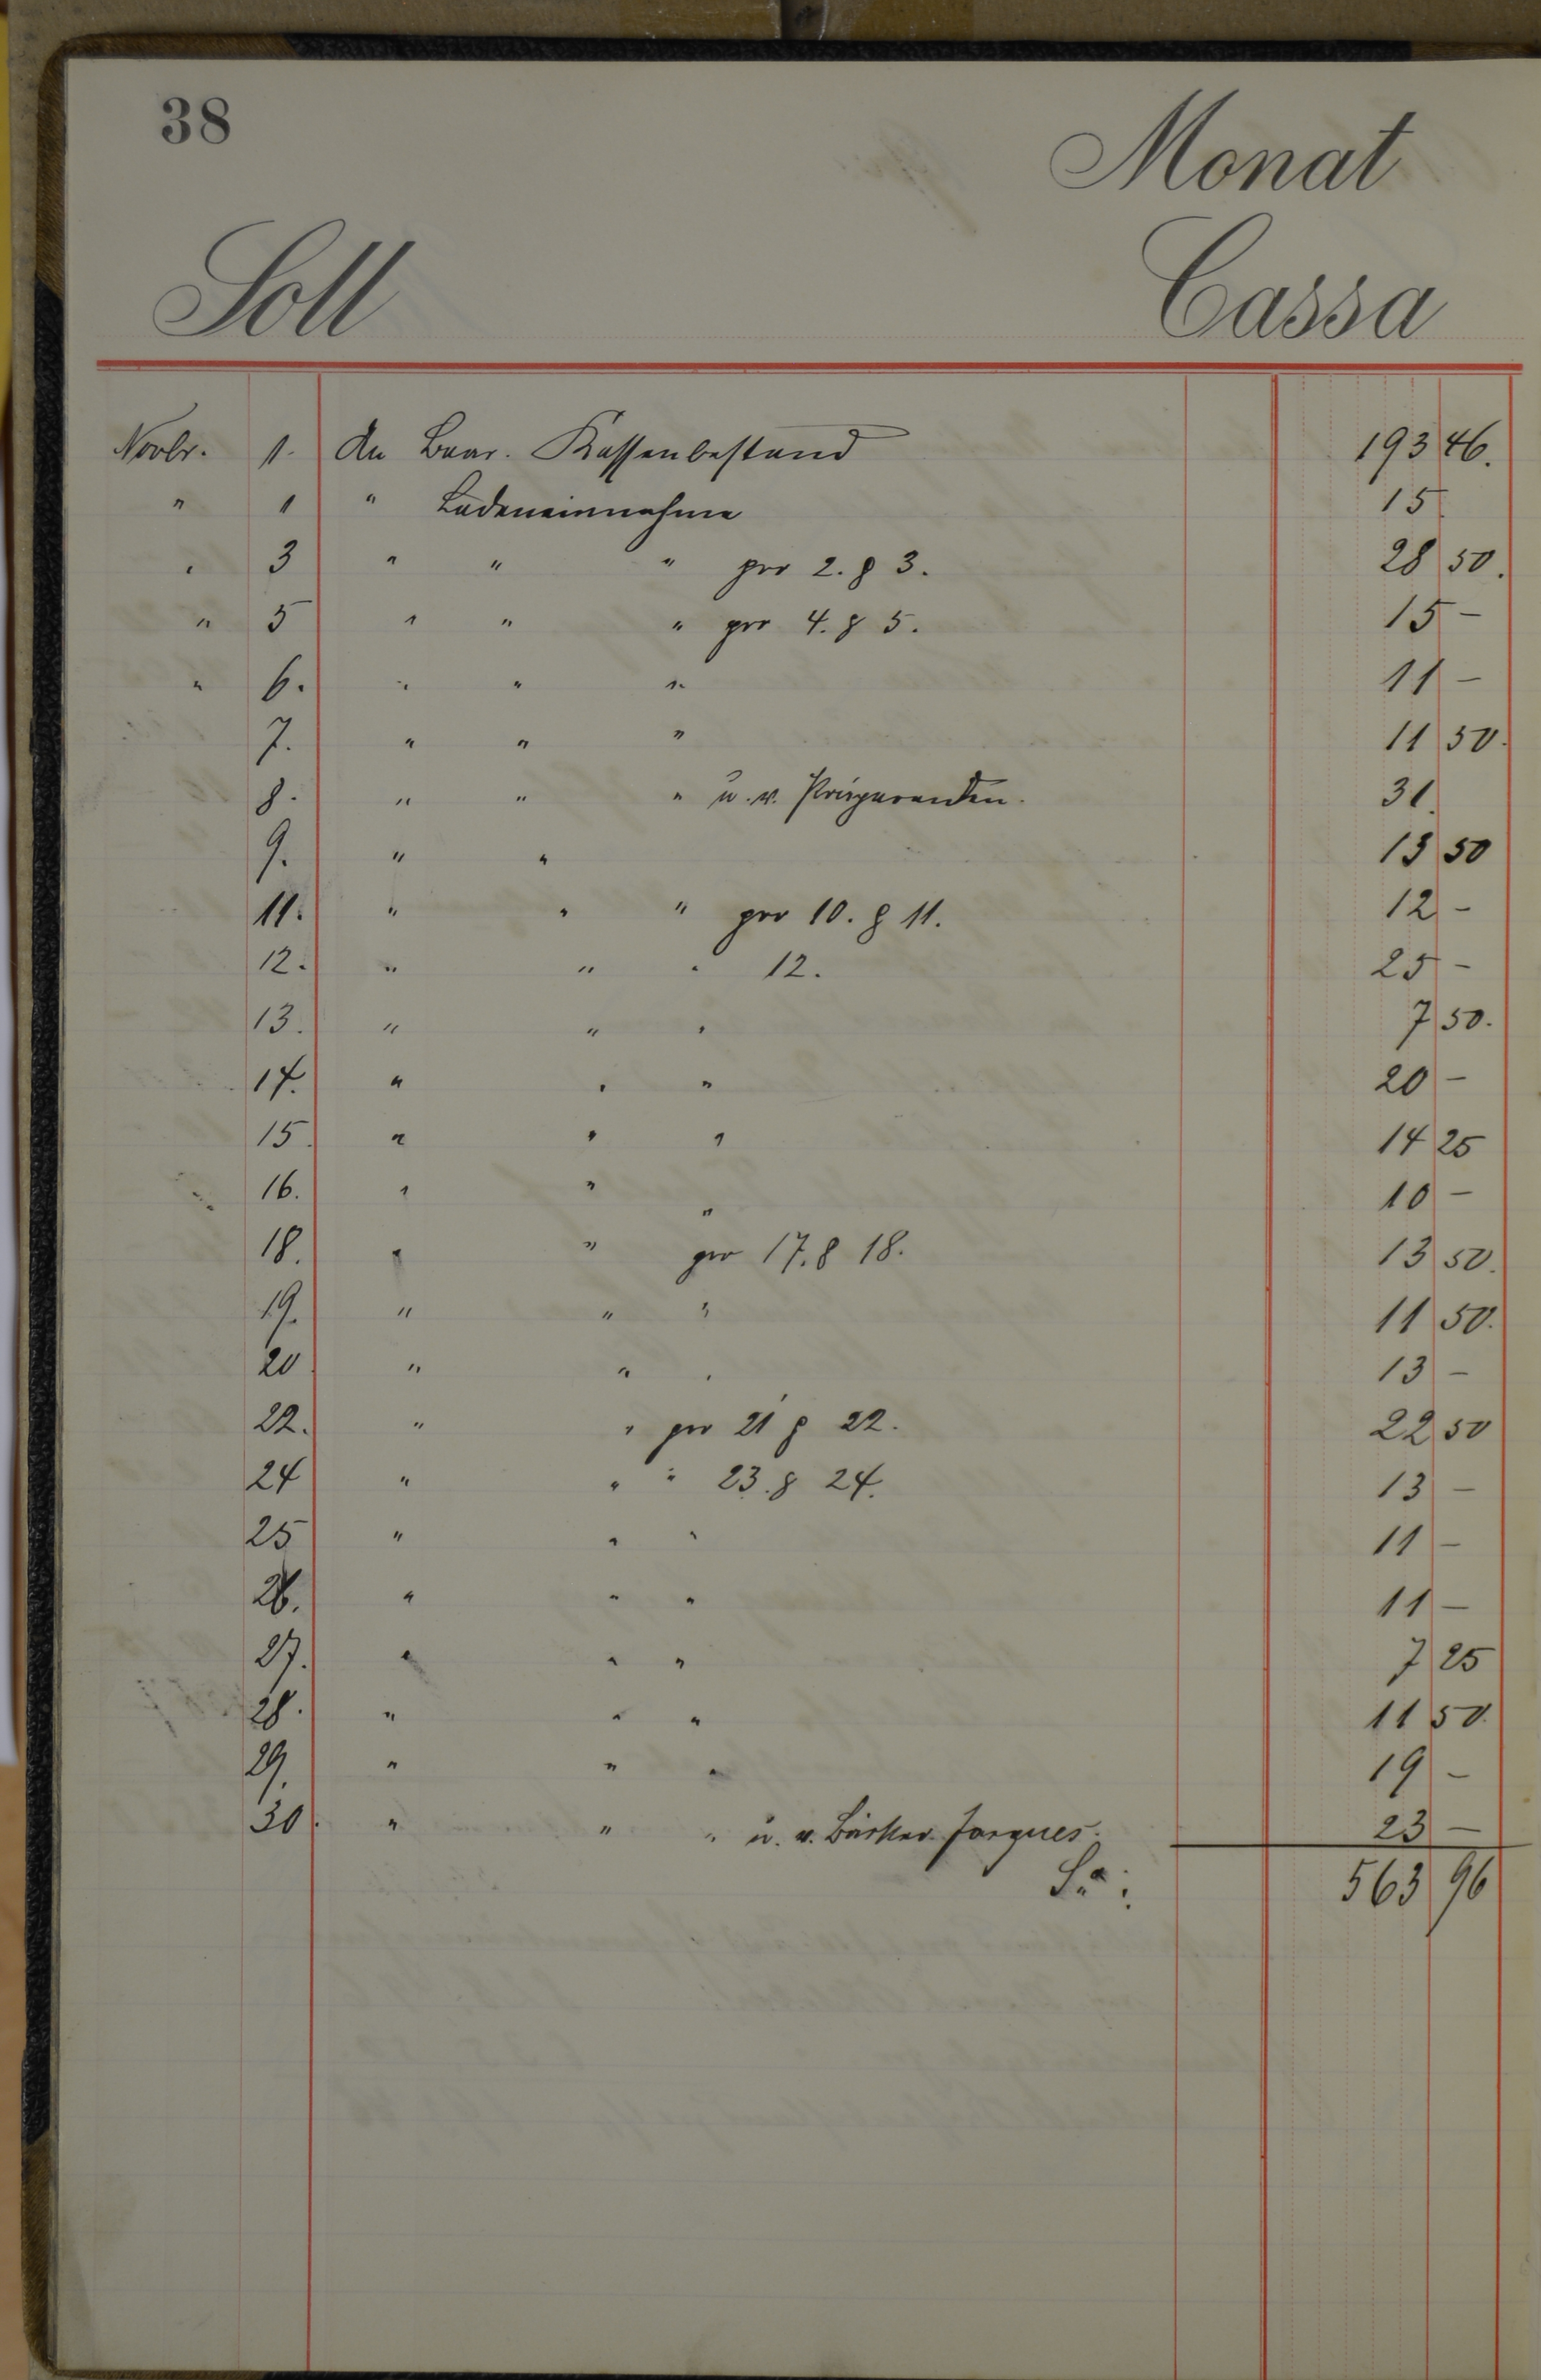 38
Monat
Soll Cassa
Novbr. 1. An Baar. Kassenbestand 193 46.
" 1 " Ladeneinnahme 15
" 3 " " " pro 2. & 3. 28 50.
" 5 " " " pro 4. & 5. 15 –
" 6. " " " 11 –
7. " " " 11 50.
8. " " " u. v. Präparanden. 31.
9. " " 13 50
11. " " " pro 10. & 11. 12 –
12. " " " 12. 25 –
13. " " " 7 50.
14. " " " 20 –
15. " " " 14 25
16. " " " 10 –
18. " " pro 17. & 18. 13 50.
19. " " " 11 50.
20 " " " 13 –
22. " " pro 21 & 22. 22 50
24 " " " 23. & 24. 13 –
25 " " " 11 –
26. " " " 11 –
27. " " " 7 25
28. " " " 11 50.
29. " " " 19 –
30. " " " u. v. Jacques. 23 –
Sa: 563 96